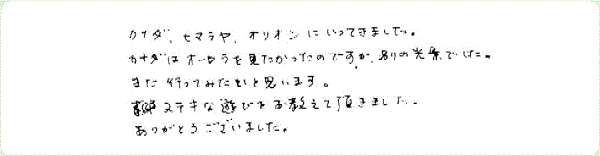 カナダ、ヒマラヤ、オリオンにいってきました。
カナダはオーロラを見たかったのですが、別の光景でした。
また行ってみたいと思います。
ステキな遊びをお教えて頂きました。
ありがとうございました。